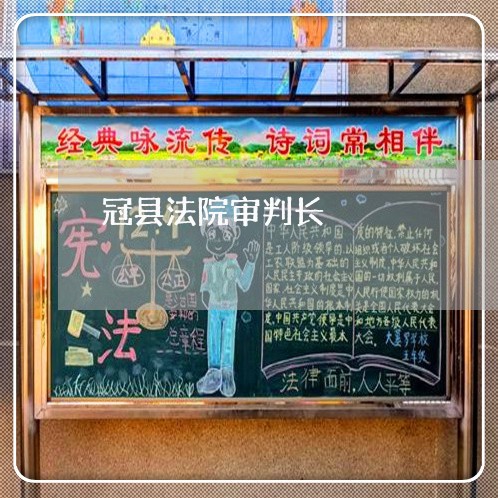 经典咏流传 诗词常相伴
冠县法院审判长
宪
法
公平
公正
总章程
中华人民共和国
是工人阶级领导的,以
工农联盟为基础的
人民民主专政的社会主义
国家。社会主义制度是中
华人民共和国的根本制
度。中国共产党领导是中
国特色社会主义最本
质的特征。禁止任何
组织或者个人破坏社会
主义制度。中华人民共和
国的一切权利属于人民。
人民行使国家权力的机
关是全国人民代表大会
和地方各级人民代表
大会。
五年级
法律面前,人人平等